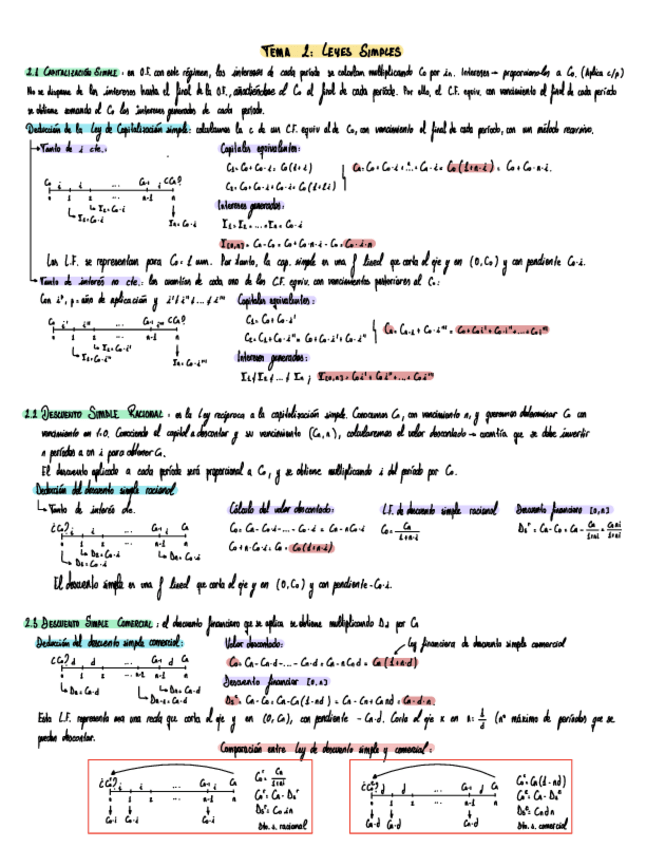 TEMA 2: LEYES SIMPLES
2.1 CAPITALIZACIÓN SIMPLE: en O.F. con este régimen, los intereses de cada período se calculan multiplicando C₀ por i·n. Intereses → proporcionales a C₀. (Aplica c/p)
No se dispone de los intereses hasta el final de la O.F., añadiéndose al C₀ al final de cada período. Por ello, el C.F. equiv. con vencimiento al final de cada período
se obtiene sumando al C₀ los intereses generados de cada período.
Deducción de la Ley de Capitalización simple: calculamos la c de un C.F. equiv al de C₀, con vencimiento al final de cada período, con un método recursivo.
Tanto de i cte.:
Capitales equivalentes:
C₁ = C₀ + C₀·i = C₀(1+i)
C₂ = C₀ + C₀·i + C₀·i = C₀(1+2i)
Cn = C₀ + C₀·i + ... + C₀·i = C₀(1+n·i) = C₀ + C₀·n·i.
C₀ i i ... Cn-1 i ¿Cn?
0 1 2 ... n-1 n
I₁ = C₀·i
I₂ = C₀·i
In = C₀·i
Intereses generados:
I₁ = I₂ = ... = In = C₀·i
I[0,n] = Cn - C₀ = C₀ + C₀·n·i - C₀ = C₀·i·n
Las L.F. se representan para C₀ = 1 u.m. Por tanto, la cap. simple es una f lineal que corta al eje y en (0, C₀) y con pendiente C₀·i.
Tanto de interés no cte.: las cuantías de cada uno de los C.F. equiv. con vencimientos posteriores al C₀:
Con iᵖ, p = año de aplicación y i' ≠ i'' ≠ ... ≠ iⁿ
Capitales equivalentes:
C₁ = C₀ + C₀·i'
C₂ = C₁ + C₀·i'' = C₀ + C₀·i' + C₀·i''
Cn = Cn-1 + C₀·iⁿ = C₀ + C₀i' + C₀·i'' + ... + C₀iⁿ
C₀ i' i'' ... Cn-1 iⁿ ¿Cn?
0 1 2 ... n-1 n
I₁ = C₀·i'
I₂ = C₀·i''
In = C₀·iⁿ
Intereses generados:
I₁ ≠ I₂ ≠ ... ≠ In ; I[0,n] = C₀i' + C₀i'' + ... + C₀iⁿ
2.2 DESCUENTO SIMPLE RACIONAL: es la Ley recíproca a la capitalización simple. Conocemos Cn, con vencimiento n, y queremos determinar C₀ con
vencimiento en t=0. Conociendo el capital a descontar y su vencimiento (Cn, n), calcularemos el valor descontado → cuantía que se debe invertir
n períodos a un i para obtener Cn.
El descuento aplicado a cada período será proporcional a C₀, y se obtiene multiplicando i del período por C₀.
Deducción del descuento simple racional
Tanto de interés cte.
Cálculo del valor descontado:
L.F. de descuento simple racional
Descuento financiero [0,n]
¿C₀? i i ... Cn-1 i Cn
0 1 2 ... n-1 n
D₁ = C₀·i
D₂ = C₀·i
Dn = C₀·i
C₀ = Cn - C₀·i - ... - C₀·i = Cn - nC₀i
C₀ + n·C₀·i = Cn = C₀(1+n·i)
C₀ = Cn/(1+n·i)
Dₛʳ = Cn - C₀ = Cn - Cn/(1+ni) = Cn·ni/(1+ni)
El descuento simple es una f lineal que corta al eje y en (0, C₀) y con pendiente -C₀·i.
2.3 DESCUENTO SIMPLE COMERCIAL: el descuento financiero que se aplica se obtiene multiplicando d por Cn
Deducción del descuento simple comercial:
Valor descontado:
Ley financiera de descuento simple comercial
C₀ = Cn - Cn·d - ... - Cn·d = Cn - nCnd = Cn(1-n·d)
¿C₀? d d ... Cn-1 d Cn
0 1 2 ... n-2 n-1 n
D₁ = Cn·d
Dn = Cn·d
Dn-1 = Cn·d
Descuento financier [0,n]
Dₛᶜ = Cn - C₀ = Cn - Cn(1-nd) = Cn - Cn + Cnnd = Cn·d·n.
Esta L.F. representa una una recta que corta al eje y en (0, Cn), con pendiente -Cn·d. Corta al eje x en n: 1/d (nº máximo de períodos que se
pueden descontar.
Comparación entre Ley de descuento simple y comercial:
¿C₀ʳ? i i ... Cn-1 i Cn
0 1 2 ... n-1 n
C₀·i C₀·i C₀·i
C₀ʳ = Cn/(1+ni)
C₀ʳ = Cn - Dₛʳ
Dₛʳ = C₀·i·n
Dto. s. racional
¿C₀ᶜ? d d ... Cn-1 d Cn
0 1 2 ... n-1 n
Cn·d Cn·d Cn·d
C₀ᶜ = Cn(1-nd)
C₀ᶜ = Cn - Dₛᶜ
Dₛᶜ = Cn·d·n
Dto. s. comercial